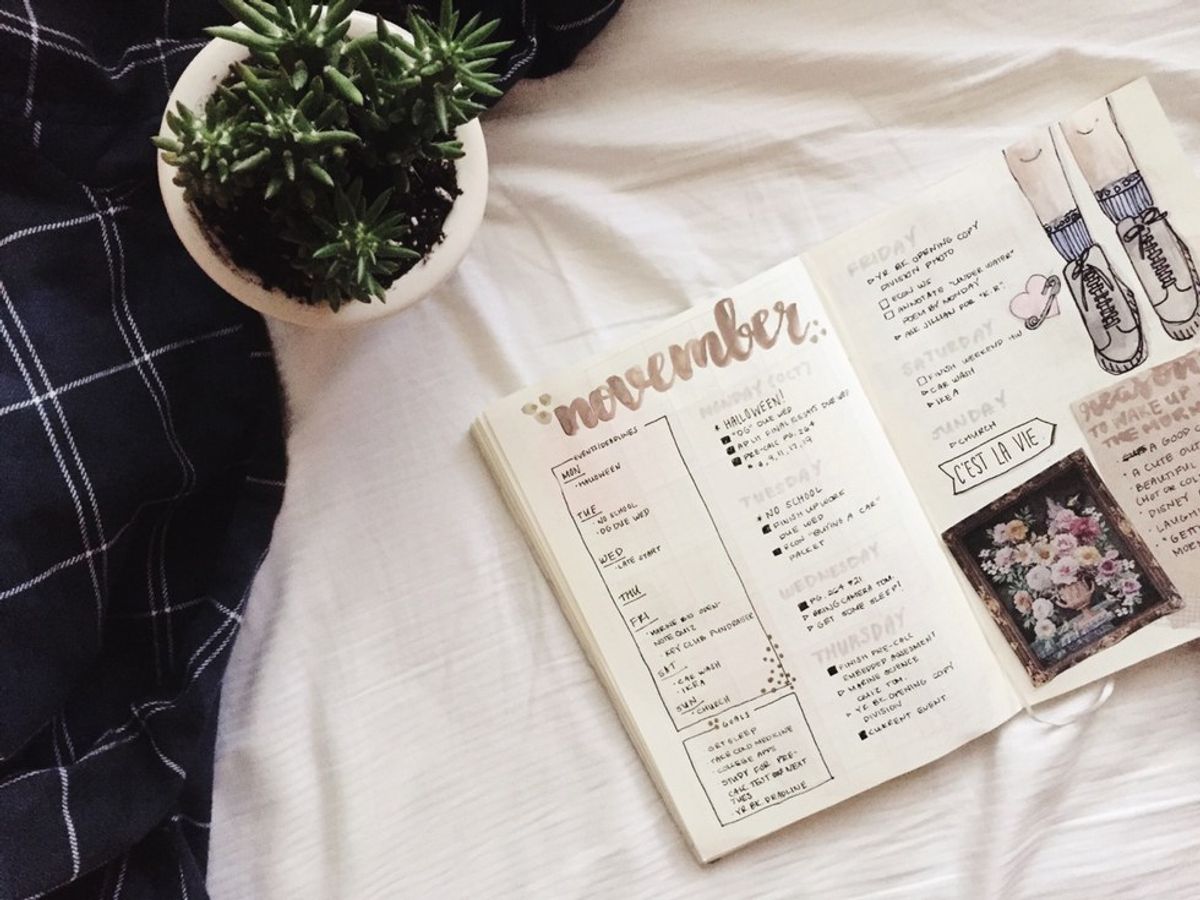 november
EVENTS/DEADLINES
MON
· HALLOWEEN
TUE
· NO SCHOOL
· DG DUE WED
WED
· LATE START
THU
FRI
· MARINE BIO OPEN-
NOTE QUIZ
· KEY CLUB FUNDRAISER
SAT
· CAR WASH
· IKEA
SUN
· CHURCH
GOALS
GET SLEEP
· TAKE COLD MEDICINE
· COLLEGE APPS
STUDY FOR PRE-
CALC TEST ON NEXT
TUES
· YR BK DEADLINE
MONDAY (OCT)
* HALLOWEEN!
"DG" DUE WED
AP LIT FINAL ESSAYS DUE WED
PRE-CALC PG. 264
* 6, 9, 11, 17, 19
TUESDAY
* NO SCHOOL
FINISH UP WORK
DUE WED
ECON "BUYING A CAR"
PACKET
WEDNESDAY
PG. 264 #21
BRING CAMERA TOM.
GET SOME SLEEP!
THURSDAY
FINISH PRE-CALC
EMBEDDED ASSESMENT
MARINE SCIENCE
QUIZ TOM.
YR BK OPENING COPY
DIVISION
CURRENT EVENT
FRIDAY
YR BK OPENING COPY
DIVISION PHOTO
ECON WS
ANNOTATE "UNDER WATER"
POEM BY MONDAY
ASK JILLIAN FOR "K.R."
SATURDAY
FINISH WEEKEND HW
CAR WASH
IKEA
SUNDAY
CHURCH
C'EST LA VIE.
reasons
TO WAKE UP
THE MORN
A GOOD
· A CUTE OU
· BEAUTIFUL
(HOT OR COL
· DISNEY
· LAUGH
· GET
MORN